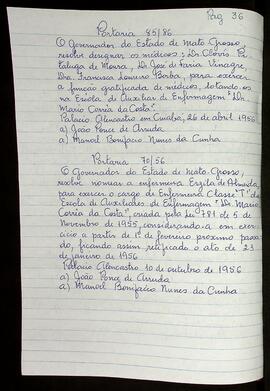 Pag 36
Portaria 85/86
O Governador do Estado de Mato Grosso
resolve designar os médicos: Dr. Clovis Pi
taluga de Moura, Dr José de Faria Vinagre,
Dra. Francisca Loureiro Borba, para exercer
a função gratificada de médicos, lotando-os
na Escola de Auxiliar de Enfermagem "Dr.
Mario Corrêa da Costa".
Palacio Alencastro em Cuiabá, 26 de abril 1956
a) João Ponce de Arruda
a) Manoel Bonifacio Nunes da Cunha
Portaria 70/56
O Governador do Estado de Mato-Grosso,
resolve nomear a enfermeira Ezgila de Almeida,
para exercer o cargo de Enfermeira Classe "I" da
Escola de Auxiliares de Enfermagem "Dr. Mario
Corrêa da Costa", criada pela Lei 791 de 5 de
Novembro de 1955, considerando-a em exer-
cicio a partir de 1º de fevereiro proximo passa
do, ficando assim retificado o ato de 23
de janeiro de 1956
Palacio Alencastro 10 de outubro de 1956
a) João Ponce de Arruda
a) Manoel Bonifacio Nunes da Cunha